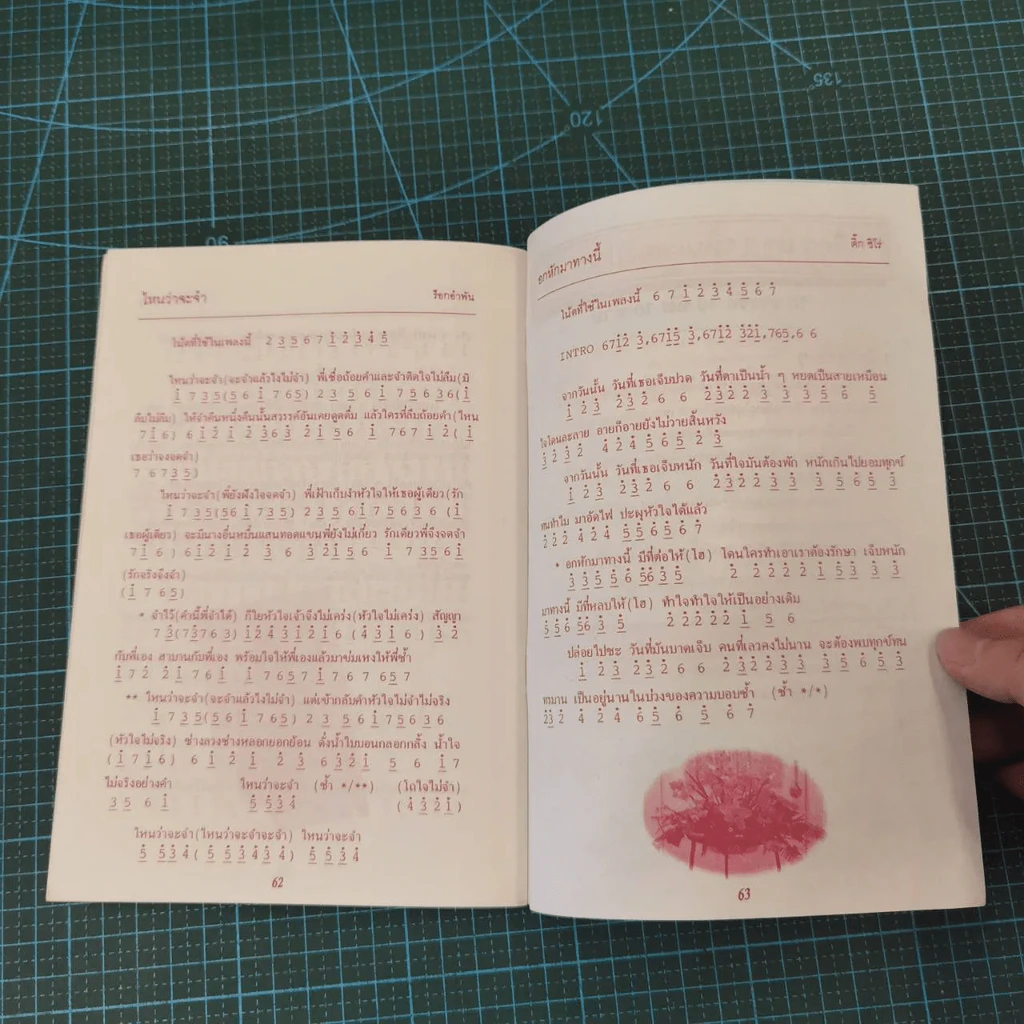 ไหนว่าจะจำ ร็อกอำพัน
โน้ตที่ใช้ในเพลงนี้ 2 3 5 6 7 1̇ 2̇ 3̇ 4̇ 5̇
ไหนว่าจะจำ(จะจำแล้วไงไม่จำ) พี่เชื่อถ้อยคำและจำติดใจไม่ลืม(มิ
1̇ 7 3 5(5 6 1̇ 7 6 5) 2 3 5 6 1̇ 7 5 6 3 6(1̇
ลืมไม่ลืม) ให้จำคืนหนึ่งคืนนั้นสวรรค์อันเคยดูดดื่ม แล้วใครที่ลืมถ้อยคำ(ไหน
7 1̇ 6) 6 1̇ 2̇ 1̇ 2̇ 3̇ 6 3̇ 2̇ 1̇ 5 6 1̇ 7 6 7 1̇ 2̇ ( 1̇
เธอว่าจงจดจำ)
7 6 7 3 5)
ไหนว่าจะจำ(พี่ยังฝังใจจดจำ) พี่เฝ้าเก็บงำหัวใจให้เธอผู้เดียว(รัก
1̇ 7 3 5(5 6 1̇ 7 3 5) 2 3 5 6 1̇ 7 5 6 3 6 (1̇
เธอผู้เดียว) จะมีนางอื่นหมื่นแสนทอดแขนพี่ยังไม่เกี่ยว รักเดียวพี่จึงจดจำ
7 1̇ 6 ) 6 1̇ 2̇ 1̇ 2̇ 3̇ 6 3̇ 2̇ 1̇ 5 6 1̇ 7 3 5 6 1̇
(รักจริงจึงจำ)
(1̇ 7 6 5)
* จำไว้(คำนี้พี่จำได้) ก็ใยหัวใจเจ้าจึงไม่เคร่ง(หัวใจไม่เคร่ง) สัญญา
7 3̇(7 3̇ 7 6 3̇ ) 1̇ 2̇ 4̇ 3̇ 1̇ 2̇ 1̇ 6 ( 4̇ 3̇ 1̇ 6 ) 3̇ 2̇
กับพี่เอง สาบานกับพี่เอง พร้อมใจให้พี่เองแล้วมาข่มเหงให้พี่ช้ำ
1̇ 7 2̇ 2̇ 1̇ 7 6 1̇ 1̇ 7 6 5 7 1̇ 7 6 7 6 5 7
** ไหนว่าจะจำ(จะจำแล้วไงไม่จำ) แต่เช้ากลับคำหัวใจไม่จำไม่จริง
1̇ 7 3 5(5 6 1̇ 7 6 5) 2 3 5 6 1̇ 7 5 6 3 6
(หัวใจไม่จริง) ช่างลวงช่างหลอกยอกย้อน ดั่งน้ำใบบอนกลอกกลิ้ง น้ำใจ
( 1̇ 7 1̇ 6 ) 6 1̇ 2̇ 1̇ 2̇ 3̇ 6 3̇ 2̇ 1̇ 5 6 1̇ 7
ไม่จริงอย่างคำ ไหนว่าจะจำ (ซ้ำ */**) (ไถใจไม่จำ)
3 5 6 1̇ 5̇ 5̇ 3̇ 4̇ ( 4̇ 3̇ 2̇ 1̇ )
ไหนว่าจะจำ(ไหนว่าจะจำจะจำ) ไหนว่าจะจำ
5̇ 5̇ 3̇ 4̇ ( 5̇ 5̇ 3̇ 4̇ 3̇ 4̇ ) 5̇ 5̇ 3̇ 4̇
62
อกหักมาทางนี้ ติ๊ก ชิโร่
โน้ตที่ใช้ในเพลงนี้ 6 7 1̇ 2̇ 3̇ 4̇ 5̇ 6̇ 7̇
INTRO 671̇2̇ 3̇,671̇5̇ 3̇,671̇2̇ 3̇2̇1̇,765,6 6
จากวันนั้น วันที่เธอเจ็บปวด วันที่ตาเป็นน้ำ ๆ หยดเป็นสายเหมือน
1̇ 2̇ 3̇ 2̇ 3̇ 2̇ 6 6 2̇ 3̇ 2̇ 2̇ 3̇ 3̇ 3̇ 5̇ 6̇ 5̇
ใจโดนละลาย อายก็อายยังไม่วายสิ้นหวัง
3̇ 2̇ 3̇ 2̇ 4̇ 2̇ 4̇ 5̇ 6̇ 5̇ 2̇ 3̇
จากวันนั้น วันที่เธอเจ็บหนัก วันที่ใจมันต้องพัก หนักเกินไปยอมทุกข์
1̇ 2̇ 3̇ 2̇ 3̇ 2̇ 6 6 2̇ 3̇ 2̇ 2̇ 3̇ 3̇ 3̇ 5̇ 6̇ 5̇ 3̇
ทนทำไม มาอัดไฟ ปะผุหัวใจได้แล้ว
2̇ 2̇ 2̇ 4̇ 2̇ 4̇ 5̇ 5̇ 6̇ 5̇ 6̇ 7̇
* อกหักมาทางนี้ มีที่ต่อให้(โฮ) โดนใครทำเอาเราต้องรักษา เจ็บหนัก
3̇ 3̇ 5̇ 5̇ 6̇ 5̇6̇ 3̇ 5̇ 2̇ 2̇ 2̇ 2̇ 1̇ 5̇ 3̇ 3̇ 3̇
มาทางนี้ มีที่หลบให้(โฮ) ทำใจทำใจให้เป็นอย่างเดิม
5̇ 5̇ 6̇ 5̇6̇ 3̇ 5̇ 2̇ 2̇ 2̇ 2̇ 2̇ 1̇ 5 6
ปล่อยไปซะ วันที่มันบาดเจ็บ คนที่เลวคงไม่นาน จะต้องพบทุกข์ทน
1̇ 2̇ 3̇ 2̇ 3̇ 2̇ 6 6 2̇ 3̇ 2̇ 2̇ 3̇ 3̇ 3̇ 5̇ 6̇ 5̇ 3̇
ทรมาน เป็นอยู่นานในบ่วงของความบอบช้ำ (ซ้ำ */*)
2̇3̇ 2̇ 4̇ 2̇ 4̇ 6̇ 5̇ 6̇ 5̇ 6̇ 7̇
63
90
120
135